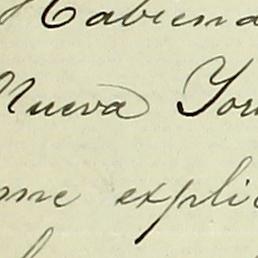 Habiend
Nueva Yor
me explic